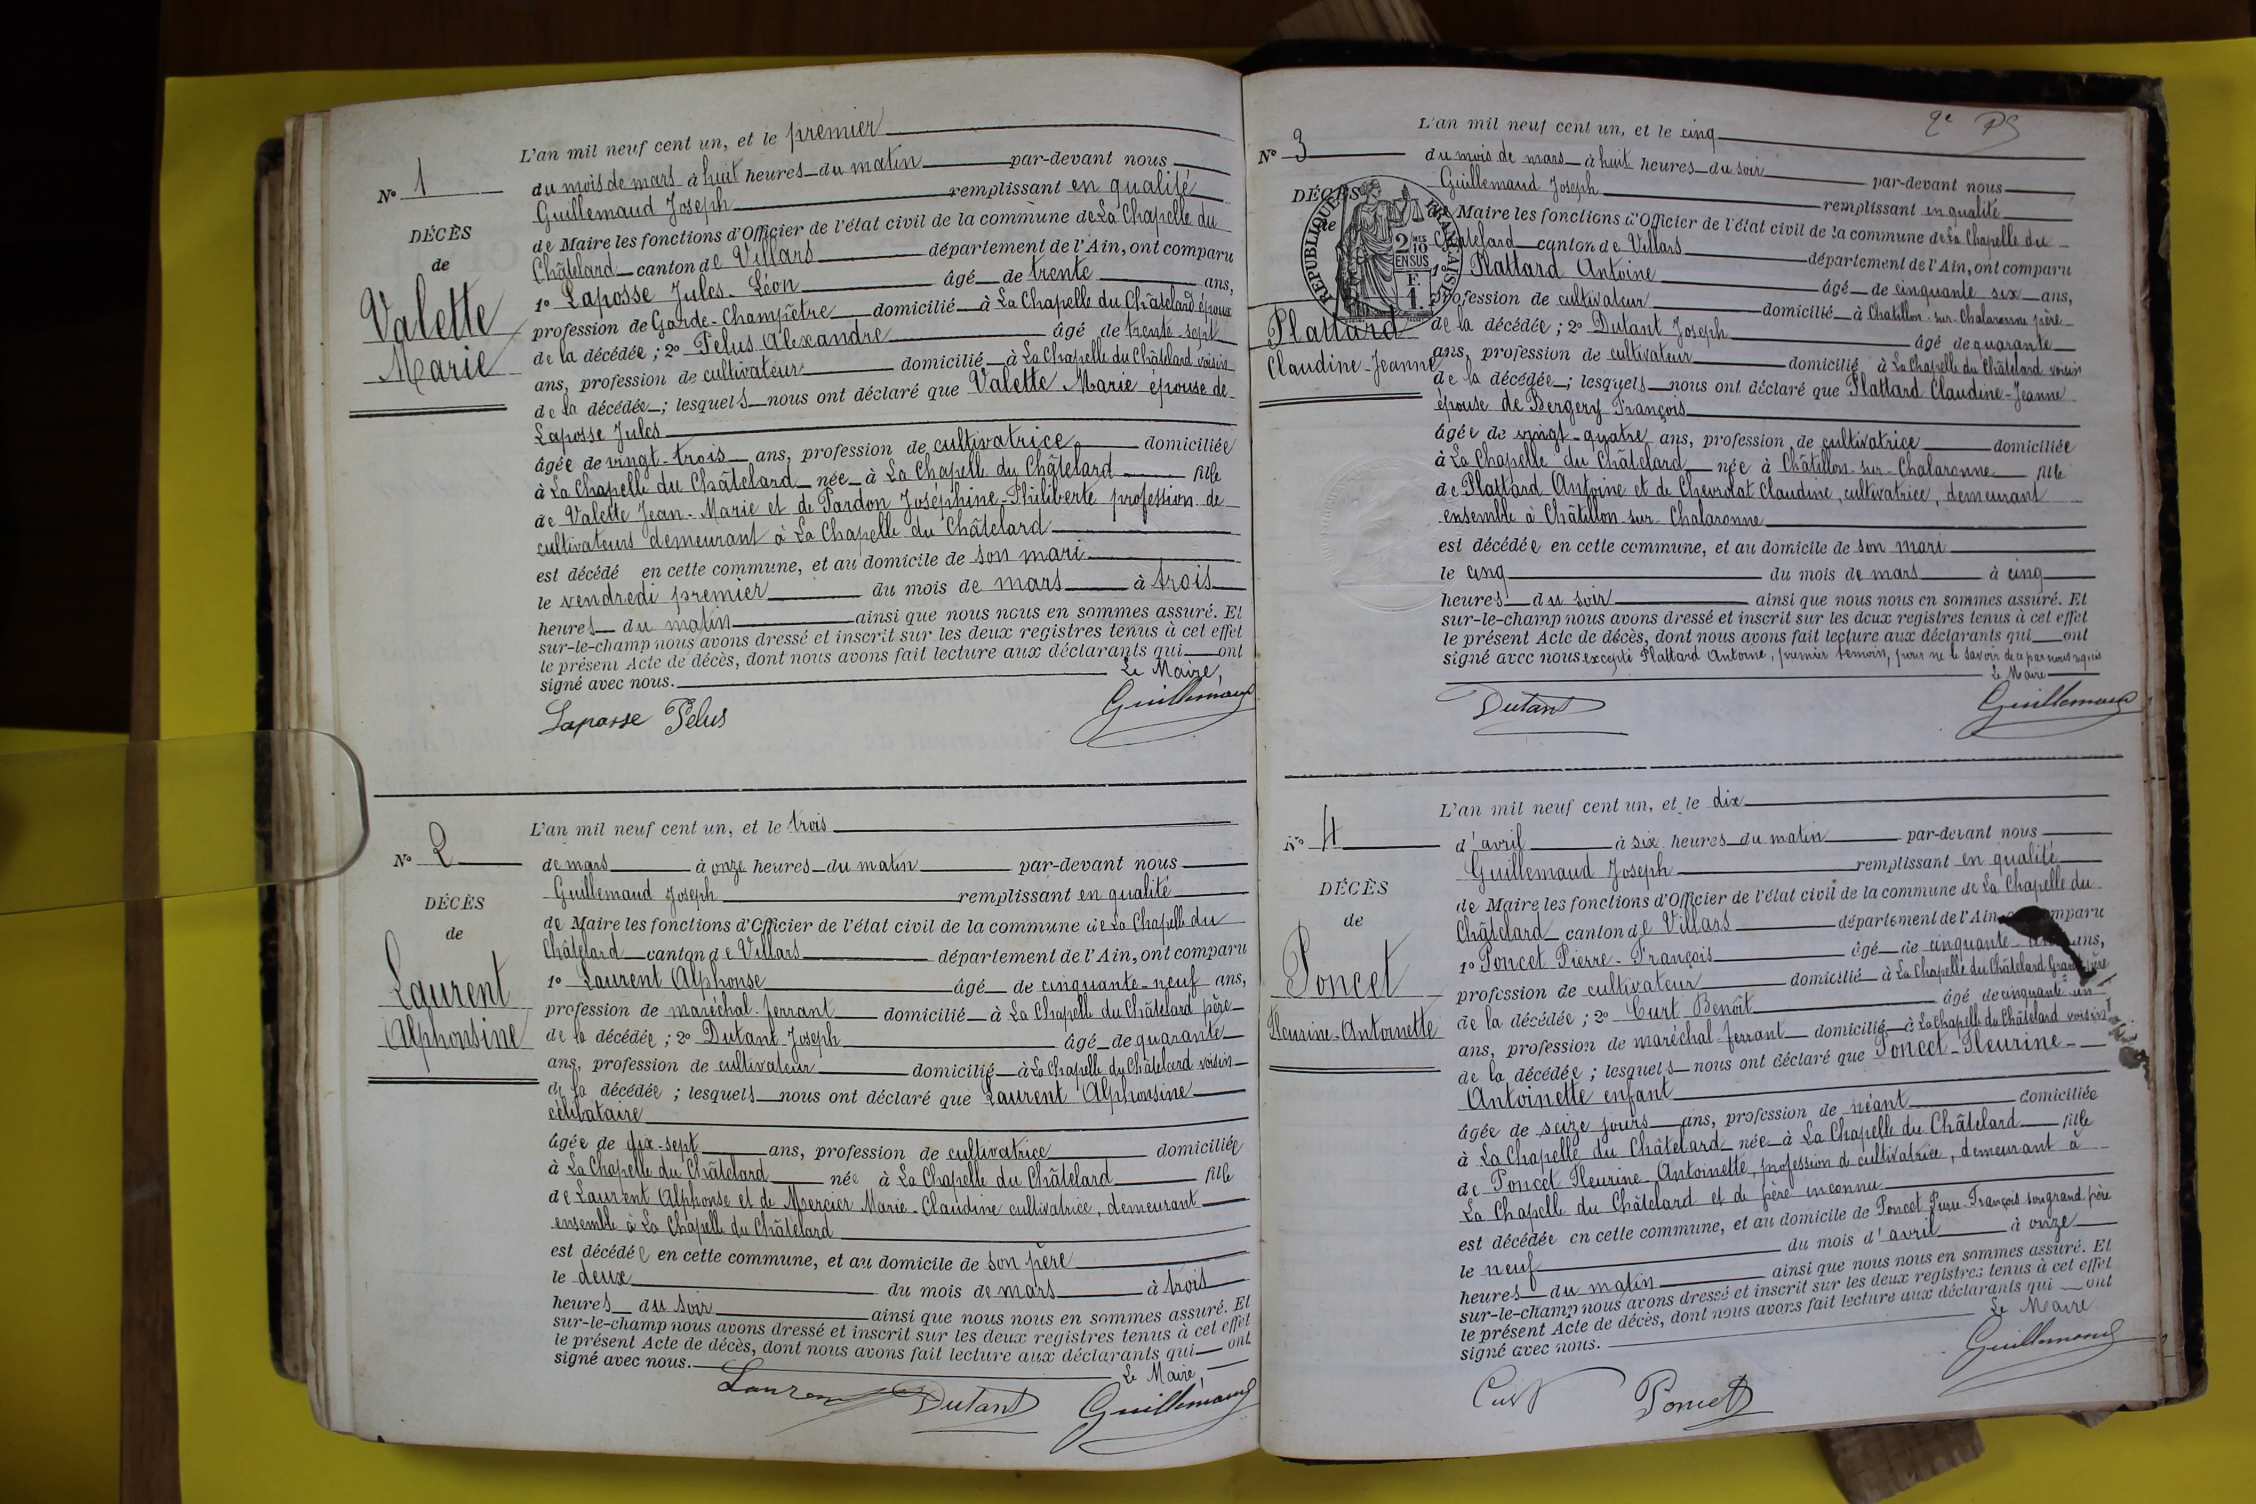 L'an mil neuf cent un, et le premier
N° 1
du mois de mars à huit heures du matin par-devant nous
Guillemaud Joseph remplissant en qualité
DÉCÈS
de Maire les fonctions d'Officier de l'état civil de la commune de La Chapelle du
de
Châtelard canton de Villars département de l'Ain, ont comparu
Valette
Marie
1° Laposse Jules-Léon âgé de trente ans,
profession de Garde-Champêtre domicilié à La Chapelle du Châtelard époux
de la décédée ; 2° Pelus Alexandre âgé de trente-sept
ans, profession de cultivateur domicilié à La Chapelle du Châtelard voisin
de la décédée ; lesquels nous ont déclaré que Valette Marie épouse de
Laposse Jules
âgée de vingt-trois ans, profession de cultivatrice domiciliée
à La Chapelle du Châtelard née à La Chapelle du Châtelard fille
de Valette Jean-Marie et de Pardon Joséphine-Philiberte profession de
cultivateurs demeurant à La Chapelle du Châtelard
est décédé en cette commune, et au domicile de son mari
le vendredi premier du mois de mars à trois
heures du matin ainsi que nous nous en sommes assuré. Et
sur-le-champ nous avons dressé et inscrit sur les deux registres tenus à cet effet
le présent Acte de décès, dont nous avons fait lecture aux déclarants qui ont
signé avec nous. Le Maire,
Laposse Pelus Guillemaud
L'an mil neuf cent un, et le trois
N° 2
de mars à onze heures du matin par-devant nous
Guillemaud Joseph remplissant en qualité
DÉCÈS
de Maire les fonctions d'Officier de l'état civil de la commune de La Chapelle du
de
Châtelard canton de Villars département de l'Ain, ont comparu
Laurent
Alphonsine
1° Laurent Alphonse âgé de cinquante-neuf ans,
profession de maréchal-ferrant domicilié à La Chapelle du Châtelard père
de la décédée ; 2° Dutant Joseph âgé de quarante
ans, profession de cultivateur domicilié à La Chapelle du Châtelard voisin
de la décédée ; lesquels nous ont déclaré que Laurent Alphonsine
célibataire
âgée de dix-sept ans, profession de cultivatrice domiciliée
à La Chapelle du Châtelard née à La Chapelle du Châtelard fille
de Laurent Alphonse et de Mercier Marie-Claudine cultivatrice, demeurant
ensemble à La Chapelle du Châtelard
est décédée en cette commune, et au domicile de son père
le deux du mois de mars à trois
heures du soir ainsi que nous nous en sommes assuré. Et
sur-le-champ nous avons dressé et inscrit sur les deux registres tenus à cet effet
le présent Acte de décès, dont nous avons fait lecture aux déclarants qui ont
signé avec nous. Le Maire,
Laurent Dutant Guillemaud
2e
L'an mil neuf cent un, et le cinq
N° 3
du mois de mars à huit heures du soir par-devant nous
Guillemaud Joseph remplissant en qualité
DÉCÈS
de
RÉPUBLIQUE FRANÇAISE
2 MES
10
EN SUS
F.
1.
de Maire les fonctions d'Officier de l'état civil de la commune de La Chapelle du
Châtelard canton de Villars département de l'Ain, ont comparu
Plattard
Claudine-Jeanne
1° Plattard Antoine âgé de cinquante six ans,
profession de cultivateur domicilié à Châtillon-sur-Chalaronne père
de la décédée ; 2° Dutant Joseph âgé de quarante
ans, profession de cultivateur domicilié à La Chapelle du Châtelard voisin
de la décédée ; lesquels nous ont déclaré que Plattard Claudine-Jeanne
épouse de Bergery François
âgée de vingt-quatre ans, profession de cultivatrice domiciliée
à La Chapelle du Châtelard née à Châtillon-sur-Chalaronne fille
de Plattard Antoine et de Chevrolat Claudine, cultivatrice, demeurant
ensemble à Châtillon-sur-Chalaronne
est décédée en cette commune, et au domicile de son mari
le cinq du mois de mars à cinq
heures du soir ainsi que nous nous en sommes assuré. Et
sur-le-champ nous avons dressé et inscrit sur les deux registres tenus à cet effet
le présent Acte de décès, dont nous avons fait lecture aux déclarants qui ont
signé avec nous excepté Plattard Antoine, premier témoin, pour ne le savoir de ce par nous requis
Le Maire
Dutant Guillemaud
L'an mil neuf cent un, et le dix
N° 4
d'avril à six heures du matin par-devant nous
Guillemaud Joseph remplissant en qualité
DÉCÈS
de Maire les fonctions d'Officier de l'état civil de la commune de La Chapelle du
de
Châtelard canton de Villars département de l'Ain, ont comparu
Poncet
Fleurine-Antoinette
1° Poncet Pierre-François âgé de cinquante ans,
profession de cultivateur domicilié à La Chapelle du Châtelard Grand-père
de la décédée ; 2° Curt Benoît âgé de cinquante-un
ans, profession de maréchal-ferrant domicilié à La Chapelle du Châtelard voisin
de la décédée ; lesquels nous ont déclaré que Poncet-Fleurine-
Antoinette enfant
âgée de seize jours ans, profession de néant domiciliée
à La Chapelle du Châtelard née à La Chapelle du Châtelard fille
de Poncet Fleurine-Antoinette, profession de cultivatrice, demeurant à
La Chapelle du Châtelard et de père inconnu
est décédée en cette commune, et au domicile de Poncet Pierre-François son grand père
le neuf du mois d'avril à onze
heures du matin ainsi que nous nous en sommes assuré. Et
sur-le-champ nous avons dressé et inscrit sur les deux registres tenus à cet effet
le présent Acte de décès, dont nous avons fait lecture aux déclarants qui ont
signé avec nous. Le Maire
Curt Poncet Guillemaud